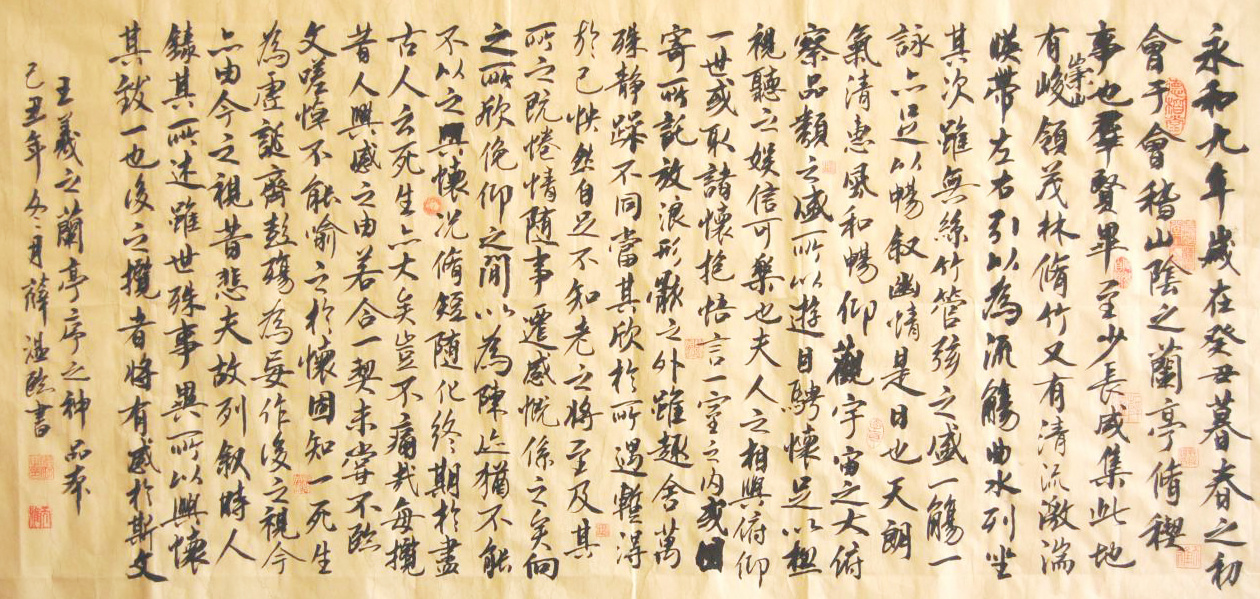 永和九年歲在癸丑暮春之初
會于會稽山陰之蘭亭脩稧
事也羣賢畢至少長咸集此地
有崇山峻領茂林脩竹又有清流激湍
暎帶左右引以為流觴曲水列坐
其次雖無絲竹管弦之盛一觴一
詠亦足以暢叙幽情是日也天朗
氣清惠風和暢仰觀宇宙之大俯
察品類之盛所以遊目騁懷足以極
視聽之娛信可樂也夫人之相與俯仰
一世或取諸懷抱悟言一室之内或因
寄所託放浪形骸之外雖趣舍萬
殊静躁不同當其欣於所遇暫得
於己怏然自足不知老之將至及其
所之既惓情随事遷感慨係之矣向
之所欣俛仰之閒以為陳迹猶不能
不以之興懷况脩短随化終期於盡
古人云死生亦大矣豈不痛哉每攬
昔人興感之由若合一契未嘗不臨
文嗟悼不能喻之於懷固知一死生
為虛誕齊彭殤為妄作後之視今
亦由今之視昔悲夫故列叙時人
錄其所述雖世殊事異所以興懷
其致一也後之攬者將有感於斯文
王羲之蘭亭序之神品本
己丑年冬月薛温臨書